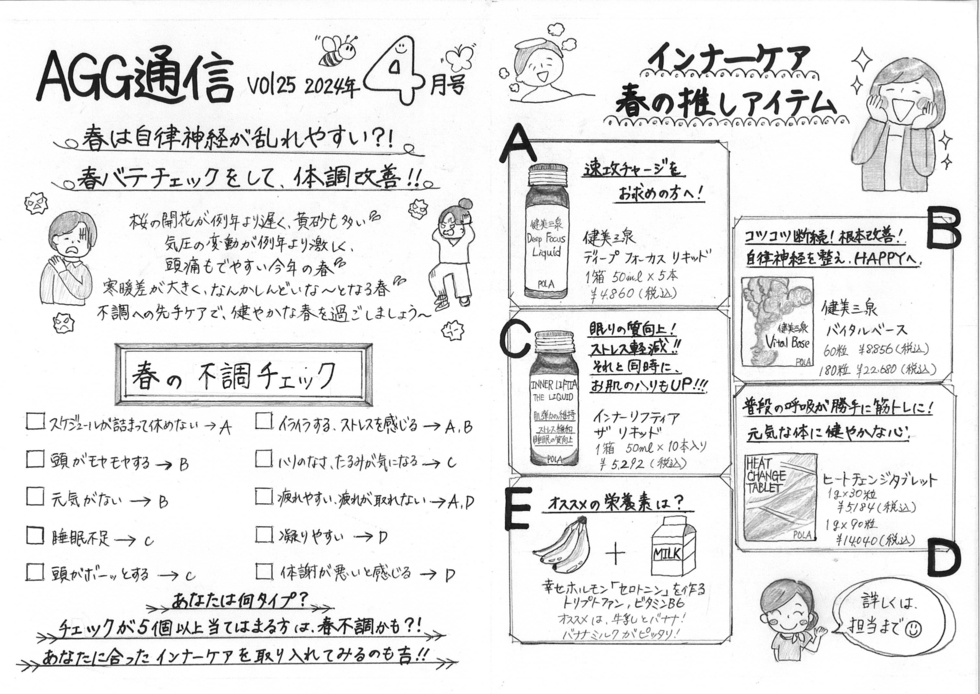 AGG通信 VOl25 2024年 4月号
春は自律神経が乱れやすい?!
春バテチェックをして、体調改善!!
桜の開花が例年より遅く、黄砂も多い
気圧の変動が例年より激しく、
頭痛もでやすい今年の春
寒暖差が大きく、なんかしんどいな〜となる春
不調への先手ケアで、健やかな春を過ごしましょう〜
春の不調チェック
スケジュールが詰まって休めない→A
頭がモヤモヤする→B
元気がない→B
睡眠不足→C
頭がボーッとする→C
イライラする、ストレスを感じる→A,B
ハリのなさ、たるみが気になる→C
疲れやすい、疲れが取れない→A,D
凝りやすい→D
体謝が悪いと感じる→D
あなたは何タイプ?
チェックが5個以上当てはまる方は、春不調かも?!
あなたに合ったインナーケアを取り入れてみるのも吉!!
インナーケア
春の推しアイテム
A
速攻チャージを
お求めの方へ!
健美三泉
Deep Focus
Liquid
POLA
健美三泉
ディープ フォーカス リキッド
1箱 50ml×5本
¥4,860(税込)
B
コツコツ断続!根本改善!
自律神経を整え、HAPPYへ。
健美三泉
Vital Base
POLA
健美三泉
バイタルベース
60粒 ¥8856(税込)
180粒 ¥22,680(税込)
C
眠りの質向上!
ストレス軽減!!
それと同時に、
お肌のハリもUP!!!
INNER LIFTIA
THE LIQUID
肌弾力維持
ストレス緩和
睡眠の質向上
POLA
インナーリフティア
ザ リキッド
1箱 50ml×10本入り
¥5,292(税込)
D
普段の呼吸が勝手に筋トレに!
元気な体に健やかな心!
HEAT
CHANGE
TABLET
POLA
ヒートチェンジタブレット
1g×30粒
¥5184(税込)
1g×90粒
¥14,040(税込)
E
オススメの栄養素は?
+
MILK
幸せホルモン「セロトニン」を作る
トリプトファン,ビタミンB6
オススメは、牛乳とバナナ!
バナナミルクがピッタリ!
詳しくは、
担当まで